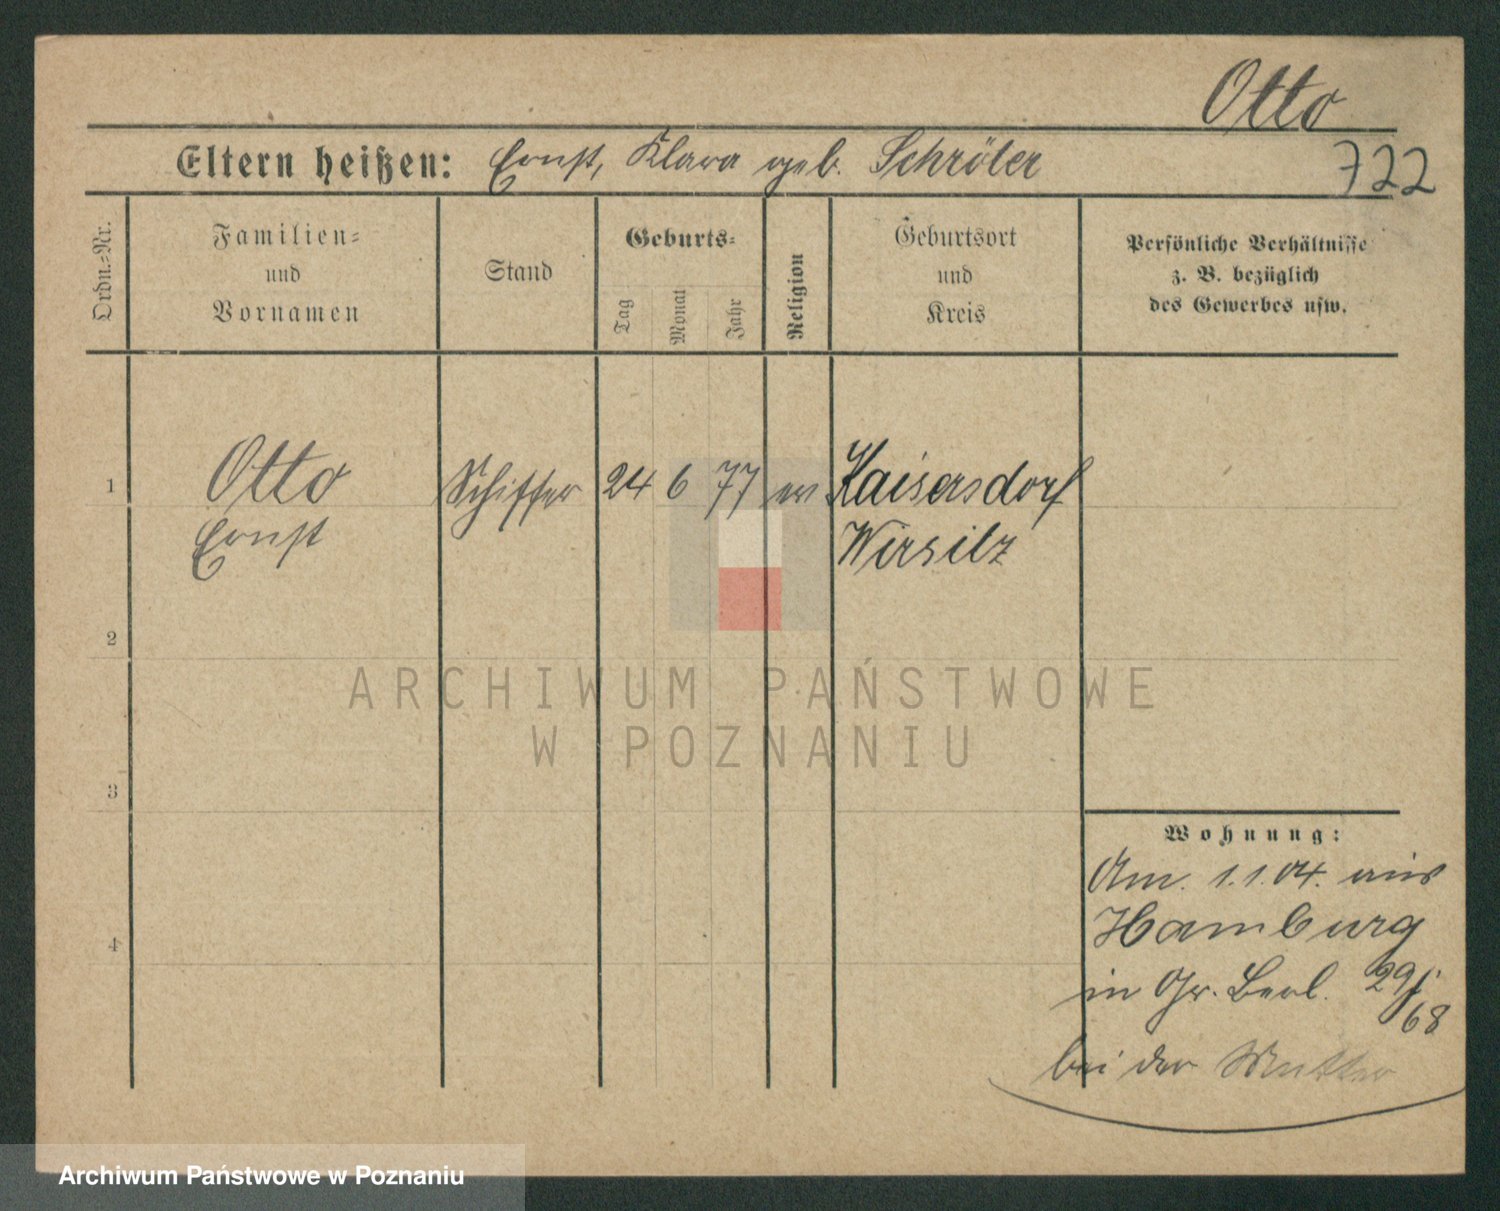 Otto
Eltern heißen: Ernst, Klara geb. Schröter
722
Ordn.-Nr.
Familien-
und
Vornamen
Stand
Geburts-
Tag
Monat
Jahr
Religion
Geburtsort
und
Kreis
Persönliche Verhältnisse
z. B. bezüglich
des Gewerbes usw.
1
Otto
Ernst
Schiffer
24
6
77
ev
Kaisersdorf
Wirsitz
2
ARCHIWUM PAŃSTWOWE
W POZNANIU
3
4
Wohnung:
Am. 1.1.04. aus
Hamburg
in Gr. Berl. 29/
68
bei der Mutter
Archiwum Państwowe w Poznaniu